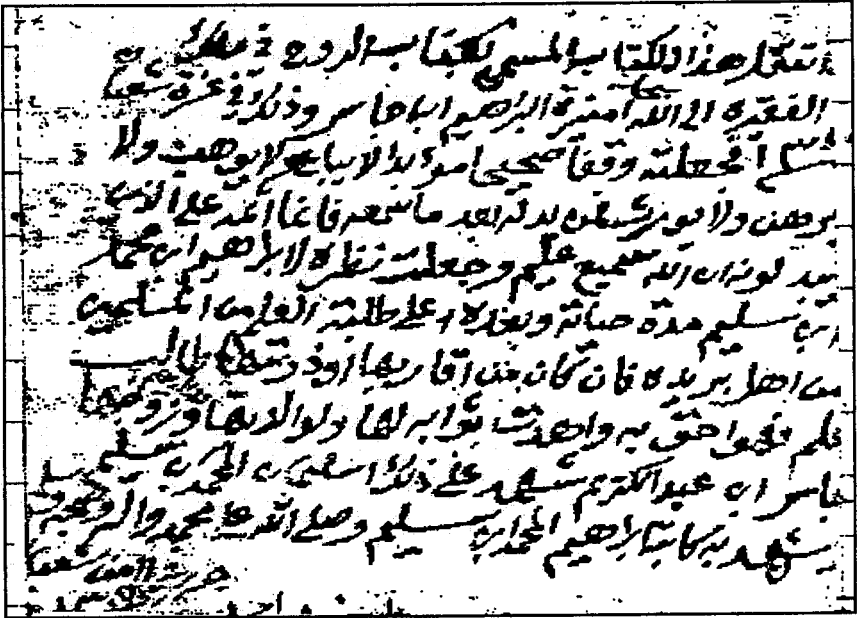 انتقل هذا الكتاب المسمى بكتاب الروح في ملك
الفقيرة الى الله منيرة البراهيم اباجاسر وذلك في غرة شعبان
فجعلته وقفا صحيحا مؤبدا لا يباع ولا يوهب ولا
يرهن ولا يورث فمن بدله بعد ما سمعه فانما اثمه على الذين
يبدلونه ان الله سميع عليم وجعلت نظره لابراهيم ابن محمد
ابن سليم مدة حياته وبعده على طلبة العلم من المسلمين
من اهل بريده فان كان من اقاربها او ذريتها طالب
علم فهو احق به واهدت ثوابه لها ولوالديها وزوجها
جاسر ابن عبدالكريم شهد على ذلك المحمد بن سليم
وشهد به كاتبه ابراهيم المحمد ابن سليم وصلى الله على محمد واله وصحبه وسلم